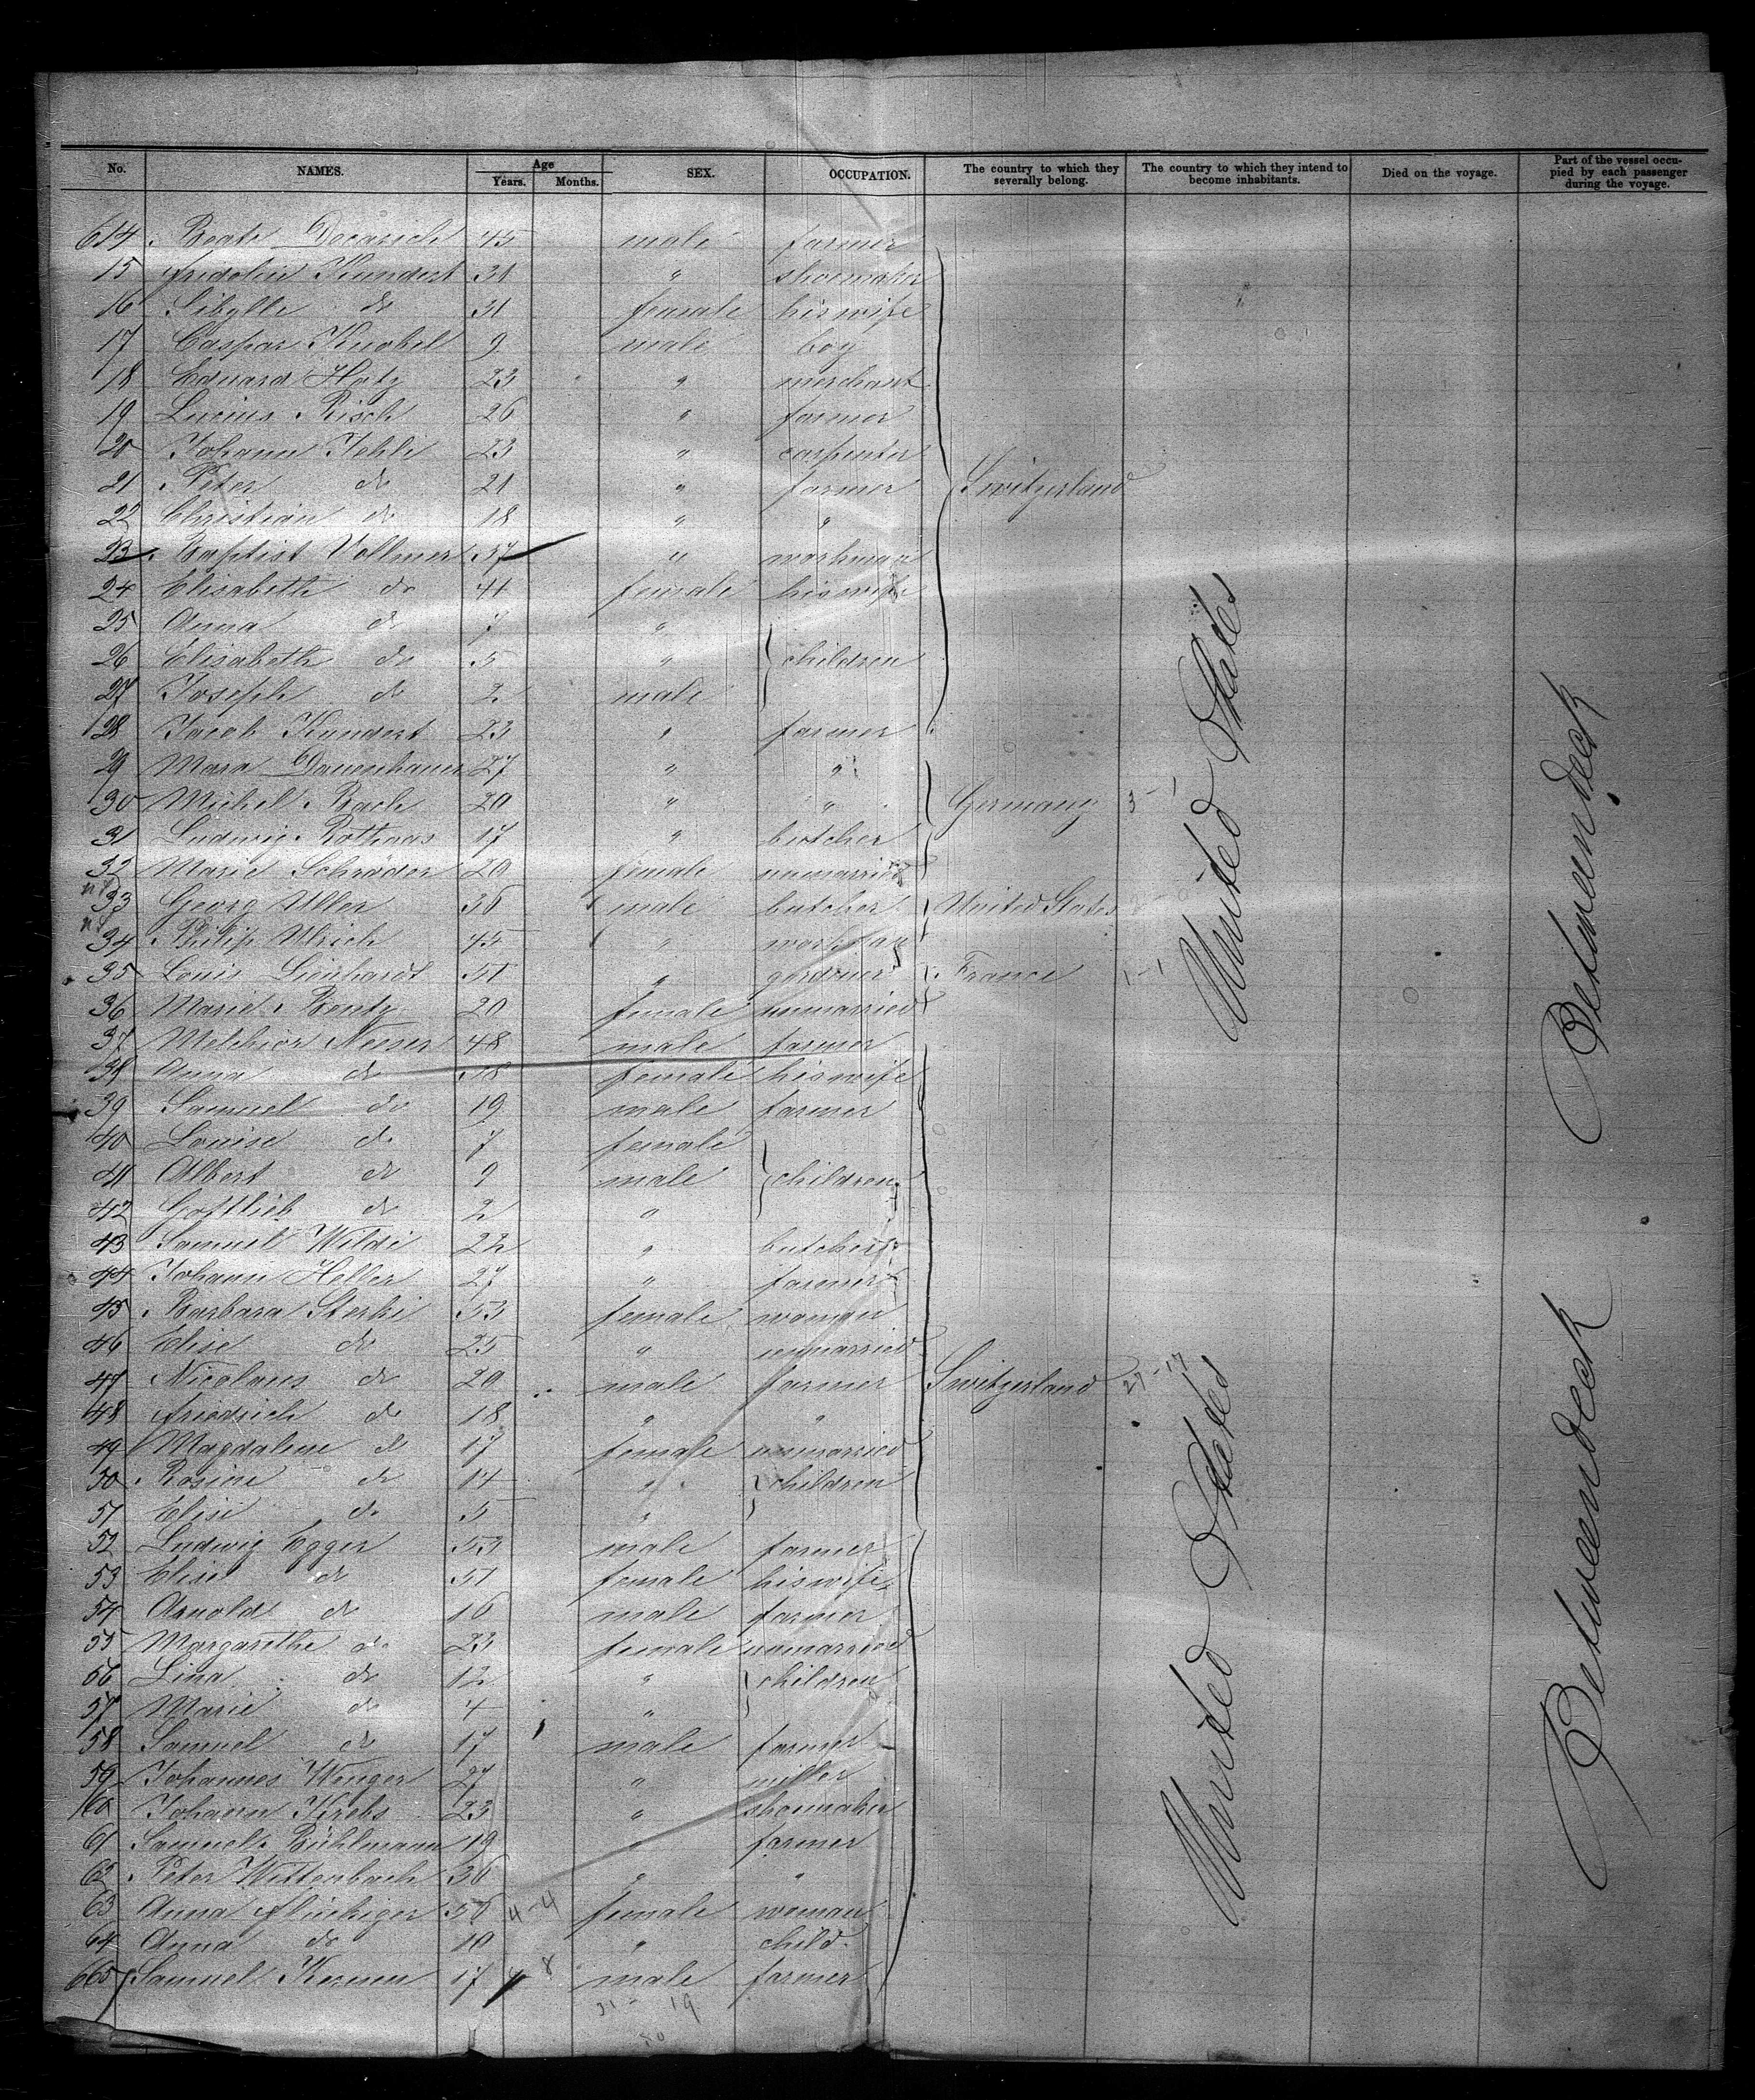 No. NAMES. Age Years. Months. SEX. OCCUPATION. The country to which they severally belong. The country to which they intend to become inhabitants. Died on the voyage. Part of the vessel occupied by each passenger during the voyage.
614 Beate 45 male farmer
15 Fridolin Kundert 31 " shoemaker
16 Sibylle do 31 female his wife
17 Caspar Knobel 9 male boy
18 Eduard Hotz 23 " merchant
19 Lucius Risch 26 " farmer
20 Johann Jehli 23 " carpenter
21 Peter do 21 " farmer Switzerland
22 Christian do 18 " "
23 Baptist Vollmer 37 " workman
24 Elisabeth do 41 female his wife
25 Anna do 7 "
26 Elisabeth do 5 " children
27 Joseph do 2 male
28 Jacob Kundert 23 " farmer
29 Mara Dauenhauer 27 " "
30 Michel Bach 20 " " Germany 3-1
31 Ludwig Rothaas 17 " butcher
32 Marie Schröder 20 female unmarried
33 Georg Uller 36 male butcher United States
34 Philip Ulrich 45 " workman
35 Louis Lienhardt 51 " gardener France 1-1
36 Marie Bentz 20 female unmarried
37 Melchior Neeser 48 male farmer
38 Anna do 48 female his wife
39 Samuel do 19 male farmer
40 Louise do 7 female
41 Albert do 9 male children
42 Gottlieb do 2 "
43 Samuel Wildi 22 " butcher
44 Johann Heller 27 " farmer
45 Barbara Sterki 53 female woman
46 Elise do 25 " unmarried
47 Nicolaus do 20 male farmer Switzerland 27-17
48 Friedrich do 18 " "
49 Magdalene do 17 female unmarried
50 Rosine do 14 " children
51 Elise do 5 "
52 Ludwig Egger 53 male farmer
53 Elise do 51 female his wife
54 Arnold do 16 male farmer
55 Margarethe do 23 female unmarried
56 Lina do 12 " children
57 Marie do 4 "
58 Samuel do 17 male farmer
59 Johannes Wenger 27 " miller
60 Johann Krebs 23 " shoemaker
61 Samuel Bühlmann 19 " farmer
62 Peter Wittenbach 36 " "
63 Anna Flückiger 50 4-4 female woman
64 Anna do 10 " child.
665 Samuel 17 8 male farmer
31- 19
50
United States
United States
Betweendeck
Betweendeck